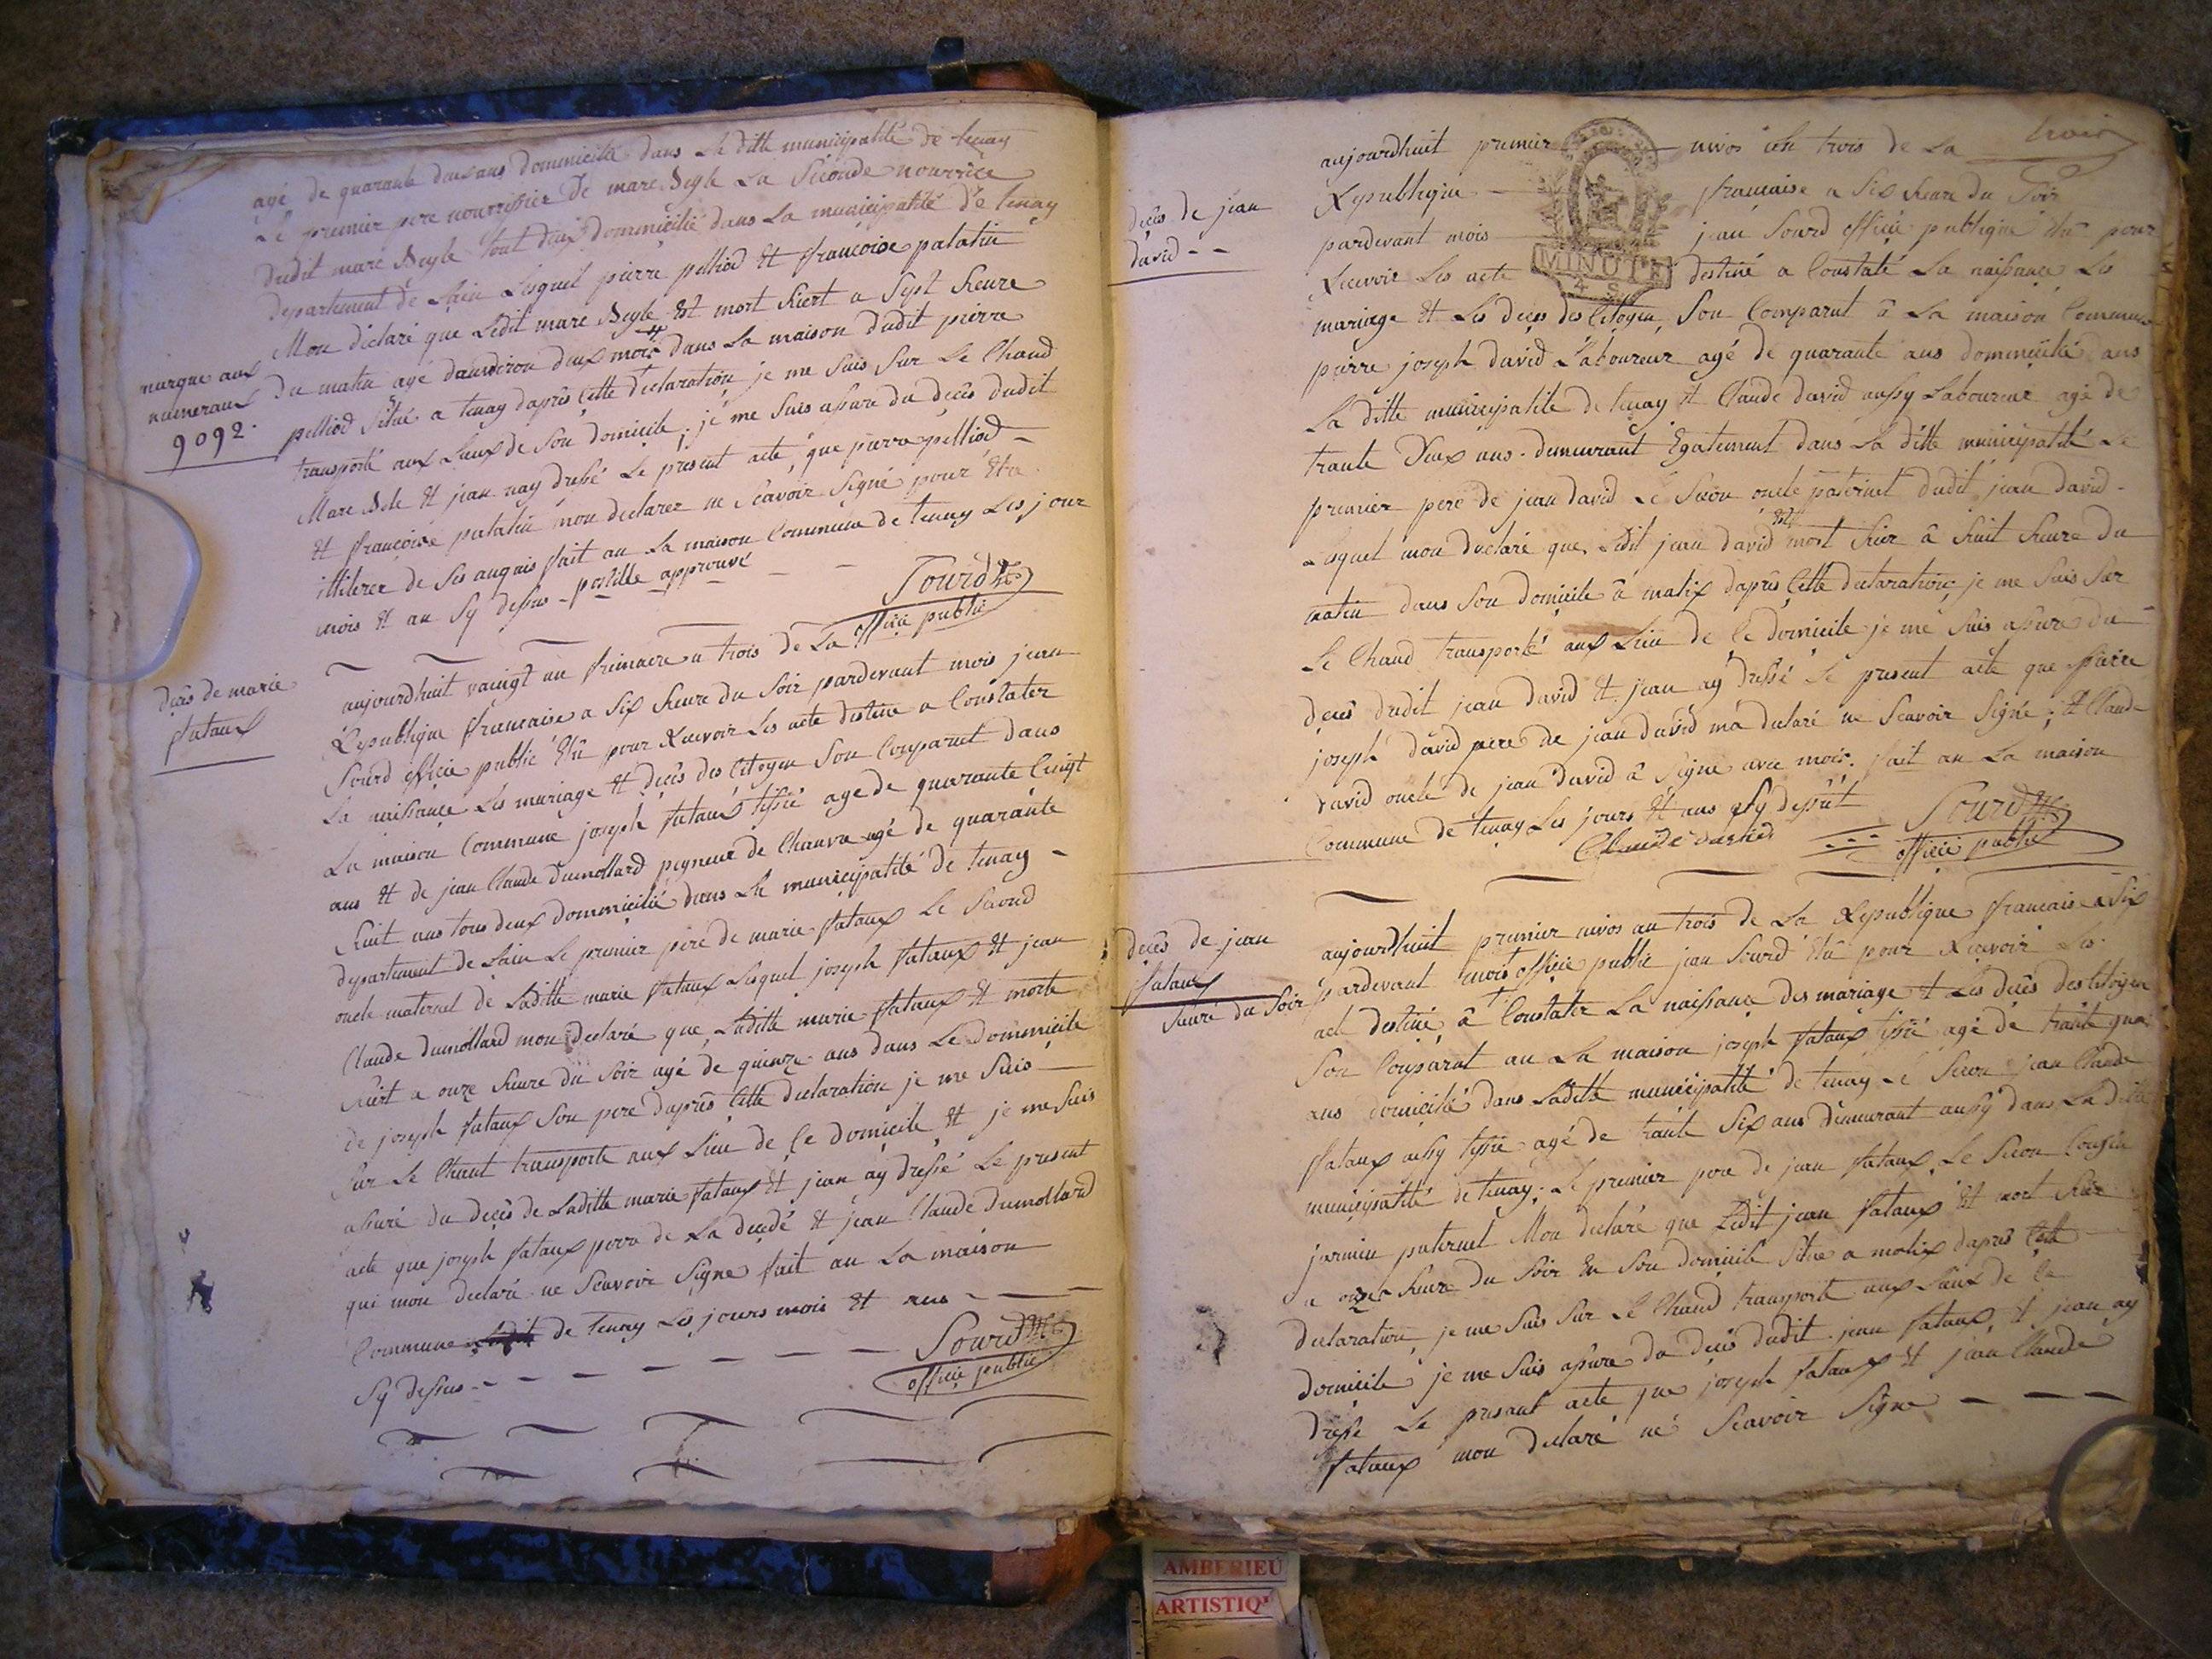 agé de quarante deux ans dommicilié dans la ditte municipalité de tenay
Le premier pere nourrissier de marc Segle La Seconde nourrice
dudit marc Segle tout deux dommicilié dans La municipalité de tenay
departement de Lain Lesquel pierre pelliod Et françoise palatin
Mon déclaré que Ledit marc Segle Est mort hiert a Sept heure
du matin agé danviron deux mois dans La maison dudit pierre
pelliod Situé a tenay daprès Cette declaration je me Suis Sur Le Chand
transporté aux Lieux de Son domicile, je me Suis assure du decès dudit
Marc Et jean nay dressé Le present acte, que pierre pelliod
Et françoise palatin mon declarez ne Scavoir Signé pour Etre
illiterez de Ses anquis fait an La maison Commune de tenay Les jour
mois Et an Sy dessus - postille approuvé
Sourd
officié public
marque aux
numeraux
9092.
décès de marie
fataux
aujourdhuit vaingt un frimaire a trois de La
Republique francaise a Six heure du Soir pardevant mois jean
Sourd officie public Elû pour Recevoir Les acte destiné a Constater
La naissance Les mariage Et decès des Citoyen Son Comparut dans
La maison Commune joseph fataux tissié age de quarante Cinqt
ans Et de jean Claude dumollard pigneur de Chanvre agé de quarante
huit ans tous deux dommicilié dans La municipalité de tenay -
departement de Lain Le premier père de marie fataux Le Second
oncle maternel de Laditte marie fataux Lesquel joseph fataux Et jean
Claude dumollard mon declaré que Laditte marie fataux Et morte
hiert a onze heure du Soir agé de quinze ans dans Le dommicile
de joseph fataux Son pere daprès Cette declaration je me Suis
Sur Le Chant transporte aux Lieu de Ce domicile Et je me Suis
assuré du decès de Laditte marie fataux Et jean ay dressé Le present
acte que joseph fataux perre de La decedé Et jean Claude dumollard
qui mon declaré ne Scavoir Signe fait an La maison
Commune de tenay Les jours mois Et ans
Sy dessus
Sourd
officié public
trois
aujourdhuit premier nivos en trois de La
Republique française a Six heure du Soir
pardevant mois jean Sourd officié publique Elû pour
Recevoir Les acte destiné a Constaté La naissance Les
MINUTE
4 S
décès de jean
david
mariage Et Les deces des Citoyen, Son Comparut à La maison Commune
pierre joseph david Laboureur agé de quarante ans dommicilié dans
La ditte municipalité de tenay Et Claude david aussy Laboureur agé de
trante Deux ans demeurant Egalement dans La ditte municipalité Le
premier père de jean david Le Secon oncle paternel dudit jean david -
Lesquel mon declaré que Ledit jean david Est mort hier à huit heure du
matin dans Son domicile à malix daprès Cette declaration je me Suis Sur
Le Chand transporté aux Lieu de Ce domicile je me Suis assure du
decès dudit jean david Et jean ay dressé Le present acte que pierre
joseph david père de jean david ma declaré ne Scavoir Signé, Et Claude
david oncle de jean david à Signe avec mois. fait an La maison
Commune de tenay Les jours Et ans Sy dessut
Claude david
Sourd
officié public
decès de jean
fataux
heure du Soir
aujourdhuit premier nivos an trois de La Republique francaise a Six
pardevant mois officie public jean Sourd Elû pour Recevoir Les
acte destiné à Constater La naissance Des mariage Et Les decès des Citoyen
Son Comparut an La maison joseph fataux tissié agé de trante quatre
ans domicilié dans Laditte municipalité de tenay Le Secon jean Claude
fataux aussy tissie agé de trante Six ans demeurant aussy dans La ditte
municipalité de tenay; Le premier pere de jean fataux, Le Secon Cousin
jarmin paternel Mon declaré que Ledit jean fataux Et mort hier
a onze heure du Soir En Son domicile Situé a malix daprès Cette
declaration je me Suis Sur Le Chand transporte aux Lieux de Ce
domicile je me Suis assure du decès dudit jean fataux, Et jean ay
dressé Le presant acte que joseph fataux Et jean Claude
fataux mon declaré né Scavoir Signe
AMBERIEU
ARTISTIQ'